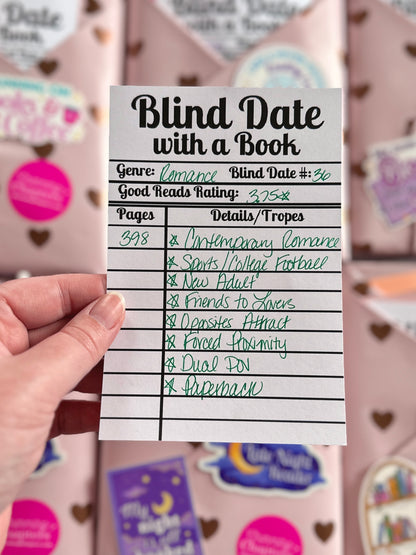 Blind Date
with a Book
Genre: Romance Blind Date #: 36
Good Reads Rating: 3.75☆
Pages Details/Tropes
398 ☆ Contemporary Romance
☆ Sports/College Football
☆ New Adult
☆ Friends to Lovers
☆ Opposites Attract
☆ Forced Proximity
☆ Dual POV
☆ Paperback
Date
with a Book
Books &
Coffee
Late Night
Reader
My